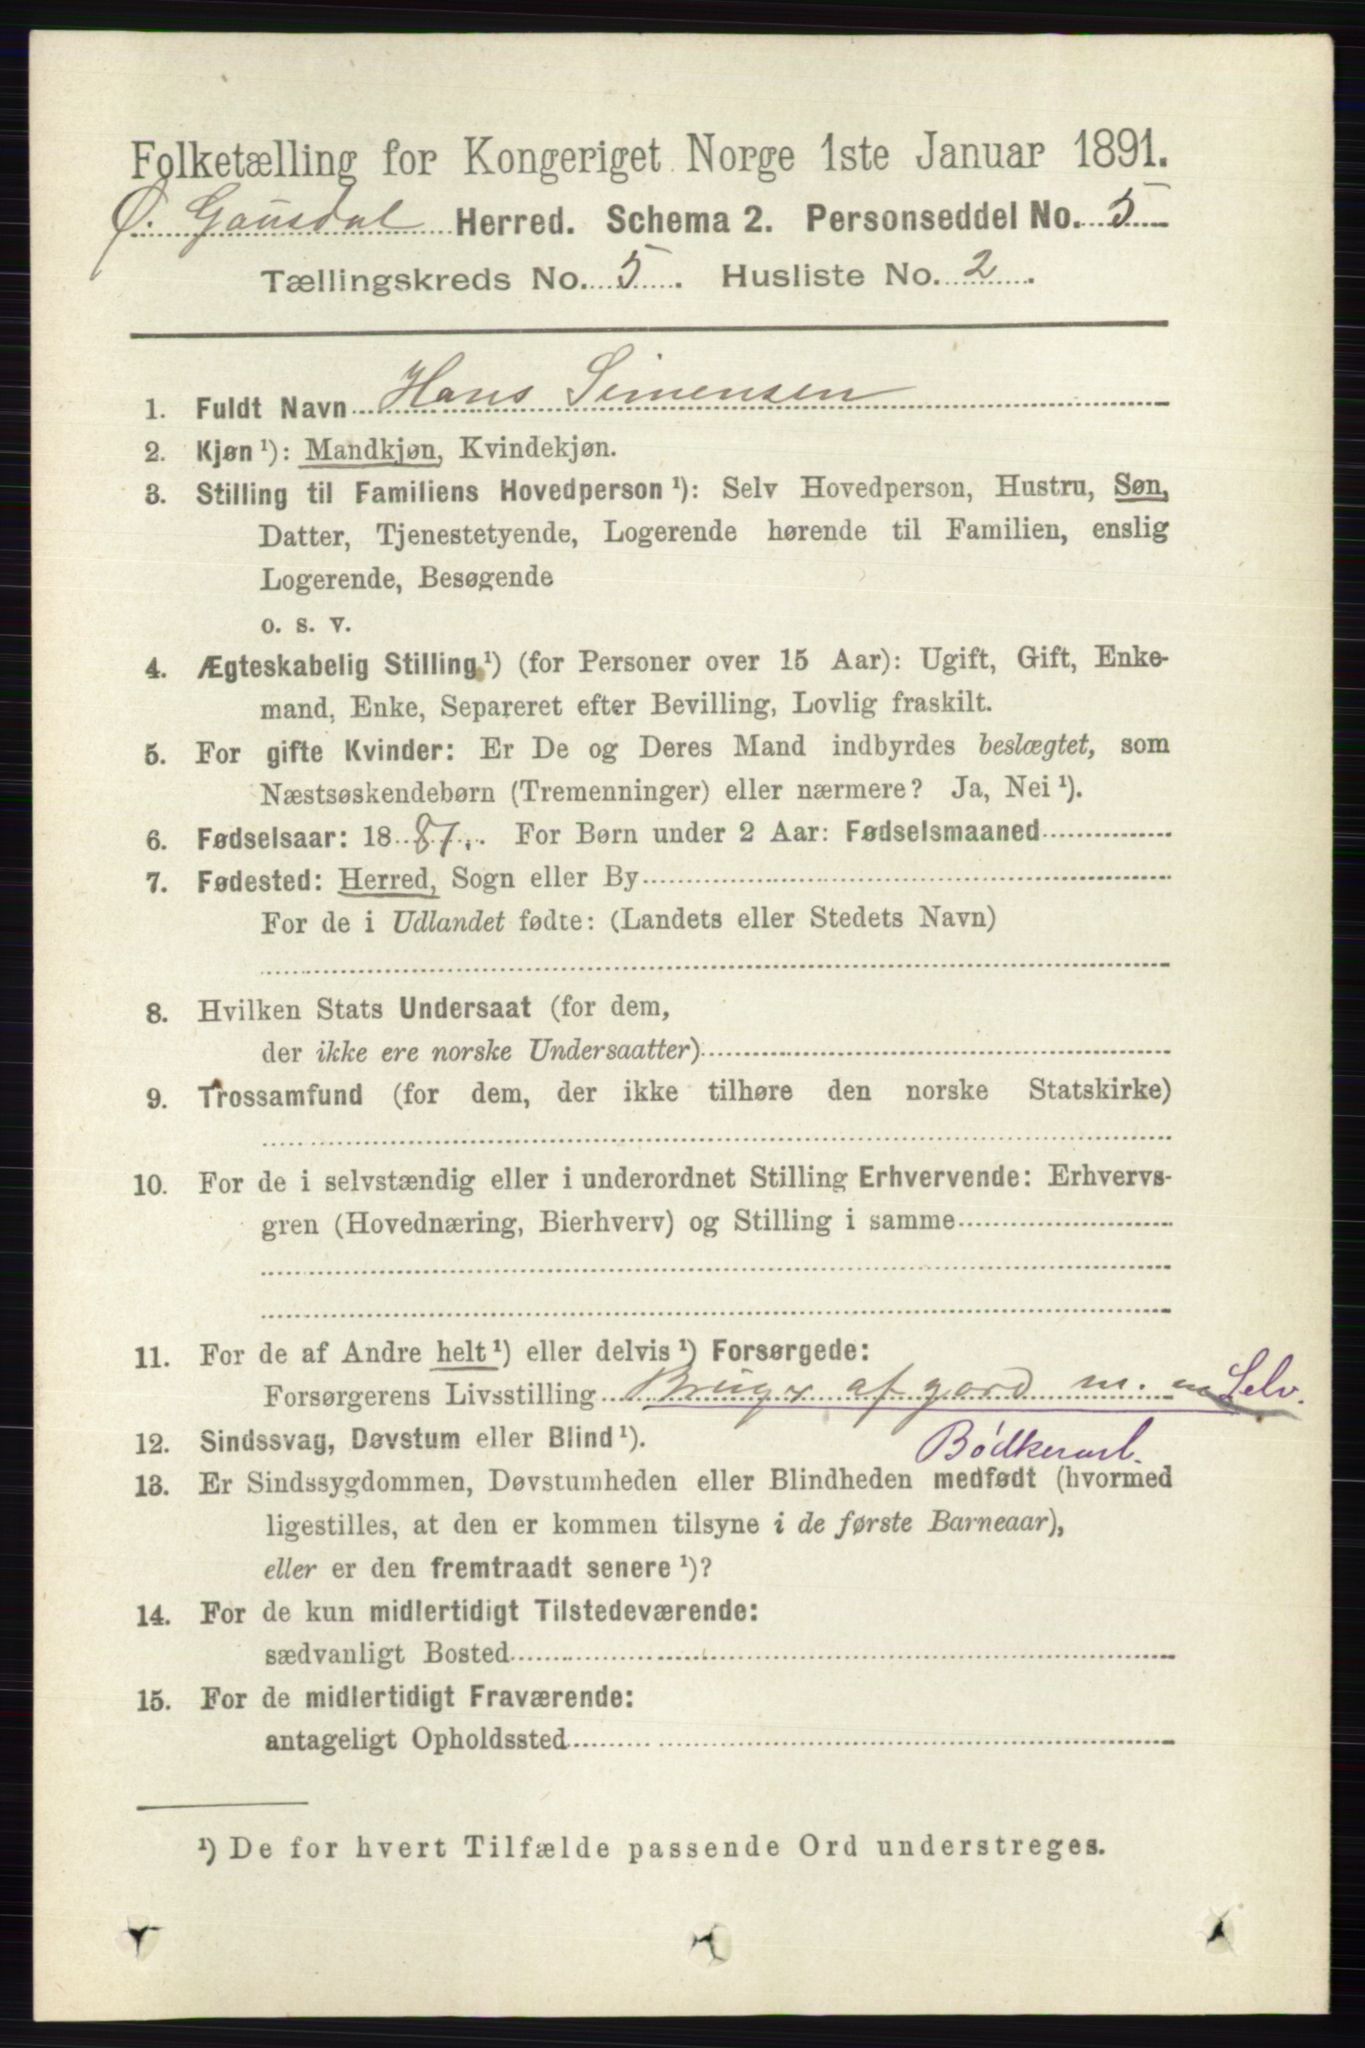 Folketælling for Kongeriget Norge 1ste Januar 1891.
Ø. Gausdal Herred. Schema 2. Personseddel No. 5
Tællingskreds No. 5. Husliste No. 2.
1. Fuldt Navn Hans Simensen
2. Kjøn ¹): Mandkjøn, Kvindekjøn.
3. Stilling til Familiens Hovedperson ¹): Selv Hovedperson, Hustru, Søn,
Datter, Tjenestetyende, Logerende hørende til Familien, enslig
Logerende, Besøgende
o. s. v.
4. Ægteskabelig Stilling ¹) (for Personer over 15 Aar): Ugift, Gift, Enke-
mand, Enke, Separeret efter Bevilling, Lovlig fraskilt.
5. For gifte Kvinder: Er De og Deres Mand indbyrdes beslægtet, som
Næstsøskendebørn (Tremenninger) eller nærmere? Ja, Nei ¹).
6. Fødselsaar: 1887. For Børn under 2 Aar: Fødselsmaaned
7. Fødested: Herred, Sogn eller By
For de i Udlandet fødte: (Landets eller Stedets Navn)
8. Hvilken Stats Undersaat (for dem,
der ikke ere norske Undersaatter)
9. Trossamfund (for dem, der ikke tilhøre den norske Statskirke)
10. For de i selvstændig eller i underordnet Stilling Erhvervende: Erhvervs-
gren (Hovednæring, Bierhverv) og Stilling i samme
11. For de af Andre helt ¹) eller delvis ¹) Forsørgede:
Forsørgerens Livsstilling Bruger af gård m. m Selv.
12. Sindssvag, Døvstum eller Blind ¹). Bødkerarb.
13. Er Sindssygdommen, Døvstumheden eller Blindheden medfødt (hvormed
ligestilles, at den er kommen tilsyne i de første Barneaar),
eller er den fremtraadt senere ¹)?
14. For de kun midlertidigt Tilstedeværende:
sædvanligt Bosted
15. For de midlertidigt Fraværende:
antageligt Opholdssted
¹) De for hvert Tilfælde passende Ord understreges.